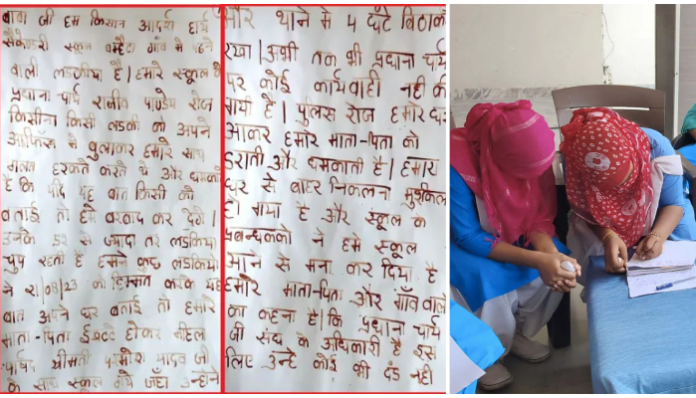 बाबा जी हम किसान आदर्श हायर
सैकेन्डरी स्कूल गाँव में पढने
वाली लडकीया है। हमारे स्कूल के
प्रधाना चार्य राजीव पाण्डेय रोज
किसीना किसी लडकी को अपने
आफिस में बुलाकर हमारे साथ
गलत हरकते करते थे और धमकी
है कि यदि यह बात किसी को
बताई तो हम बरबाद कर देगे।
उनके डर से ज्यादा तर लडकिया
चुप रहती है हमने कुछ लडकियो
ने 21/08/23 को हिम्मत करके यह
बात अपने घर बताई तो हमारे
माता-पिता होकर महिला
पार्षद श्रीमती यादव जी
के साथ स्कूल गये जहाँ उन्होने
और थाने में 4 घँटे बिठाके
रखा। अभी तक भी प्रधाना चार्य
पर कोई कार्यवाही नही की
गयी है। पुलिस रोज हमारे घर
आकर हमारे माता-पिता को
डराती और धमकाती है। हमारा
घर से बाहर निकलना मुश्किल
हो गाया है और स्कूल के
प्रबन्धकको ने हमे स्कूल
आने से मना कर दिया है
हमारे माता-पिता और गाँव वाले
का कहना है। कि प्रधाना चार्य
जी संघ के अधिकारी है इस
लिए उन्हे कोई भी दंड नही